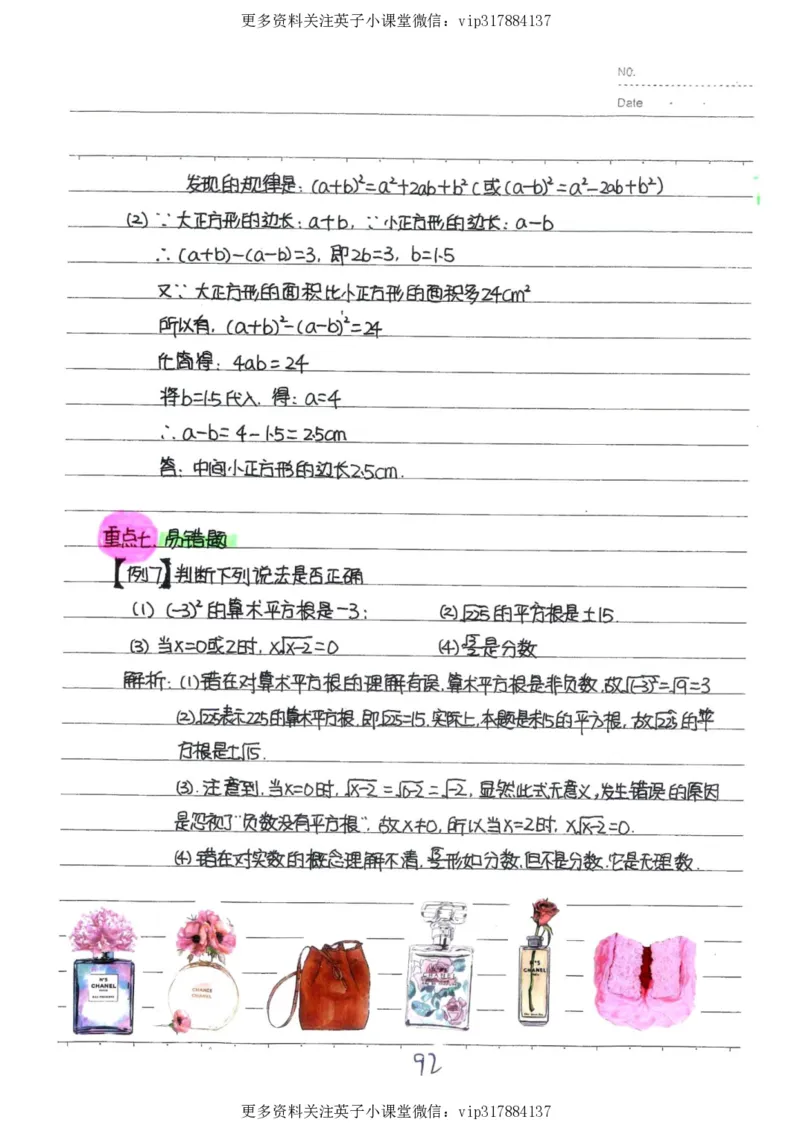 更多资料关注英子小课堂微信：vip317884137
NO.
Date
发现的规律是：(a+b)²=a²+2ab+b²(或(a-b)²=a²-2ab+b²)
(2)∵大正方形的边长：a+b，∵小正方形的边长：a-b
∴(a+b)-(a-b)=3，即2b=3，b=1.5
又∵大正方形的面积比小正方形的面积多24cm²
所以有，(a+b)²-(a-b)²=24
化简得：4ab=24
将b=1.5代入，得：a=4
∴a-b=4-1.5=2.5cm
答：中间小正方形的边长2.5cm.
重点七、易错题
【例7】判断下列说法是否正确
(1)(-3)²的算术平方根是-3； (2)√225的平方根是±15.
(3)当x=0或2时，x√x-2=0 (4)√3/2是分数
解析：(1)错在对算术平方根的理解有误，算术平方根是非负数，故√(-3)²=√9=3
(2)√225表示225的算术平方根，即√225=15，实际上，本题是求15的平方根，故√225的平
方根是±√15.
(3)．注意到，当x=0时，√x-2=√0-2=√-2，显然此式无意义，发生错误的原因
是忽视了“负数没有平方根”，故x≠0，所以当x=2时，x√x-2=0.
(4)错在对实数的概念理解不清，√3/2形如分数，但不是分数，它是无理数.
N°5
CHANEL
CHANCE
CHANEL
N°5
CHANEL
92
更多资料关注英子小课堂微信：vip317884137